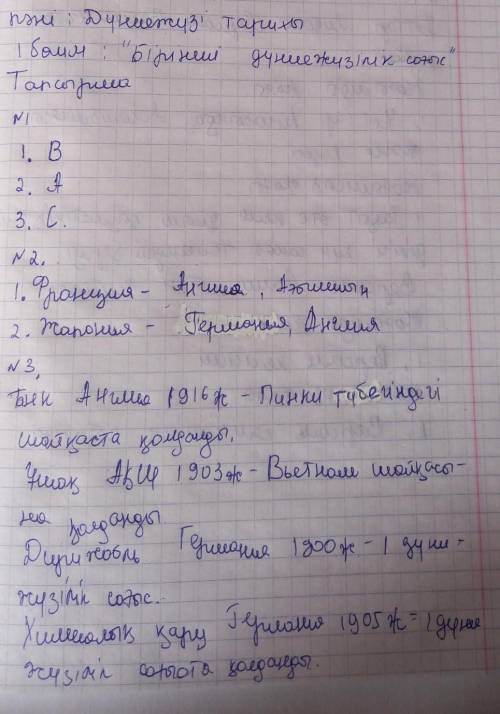 пәні : Дүниежүзі тарихы
1 бөлім : "Бірінші дүниежүзілік соғыс"
Тапсырма
№1
1. В
2. А
3. С.
№2.
1. Франция - Англия,
2. Жапония - Германия, Англия
№3,
Танк Англия 1916ж - Пинки түбегіндегі
шайқаста қолданды.
Ұшақ АҚШ 1903ж - Вьетнам шайқасы-
на қолданды
Дирижабль Германия 1900ж - 1 дүни -
жүзілік соғыс.
Химиалық қару Германия 1905ж = 1 дүние
жүзілік соғыста қолданды.